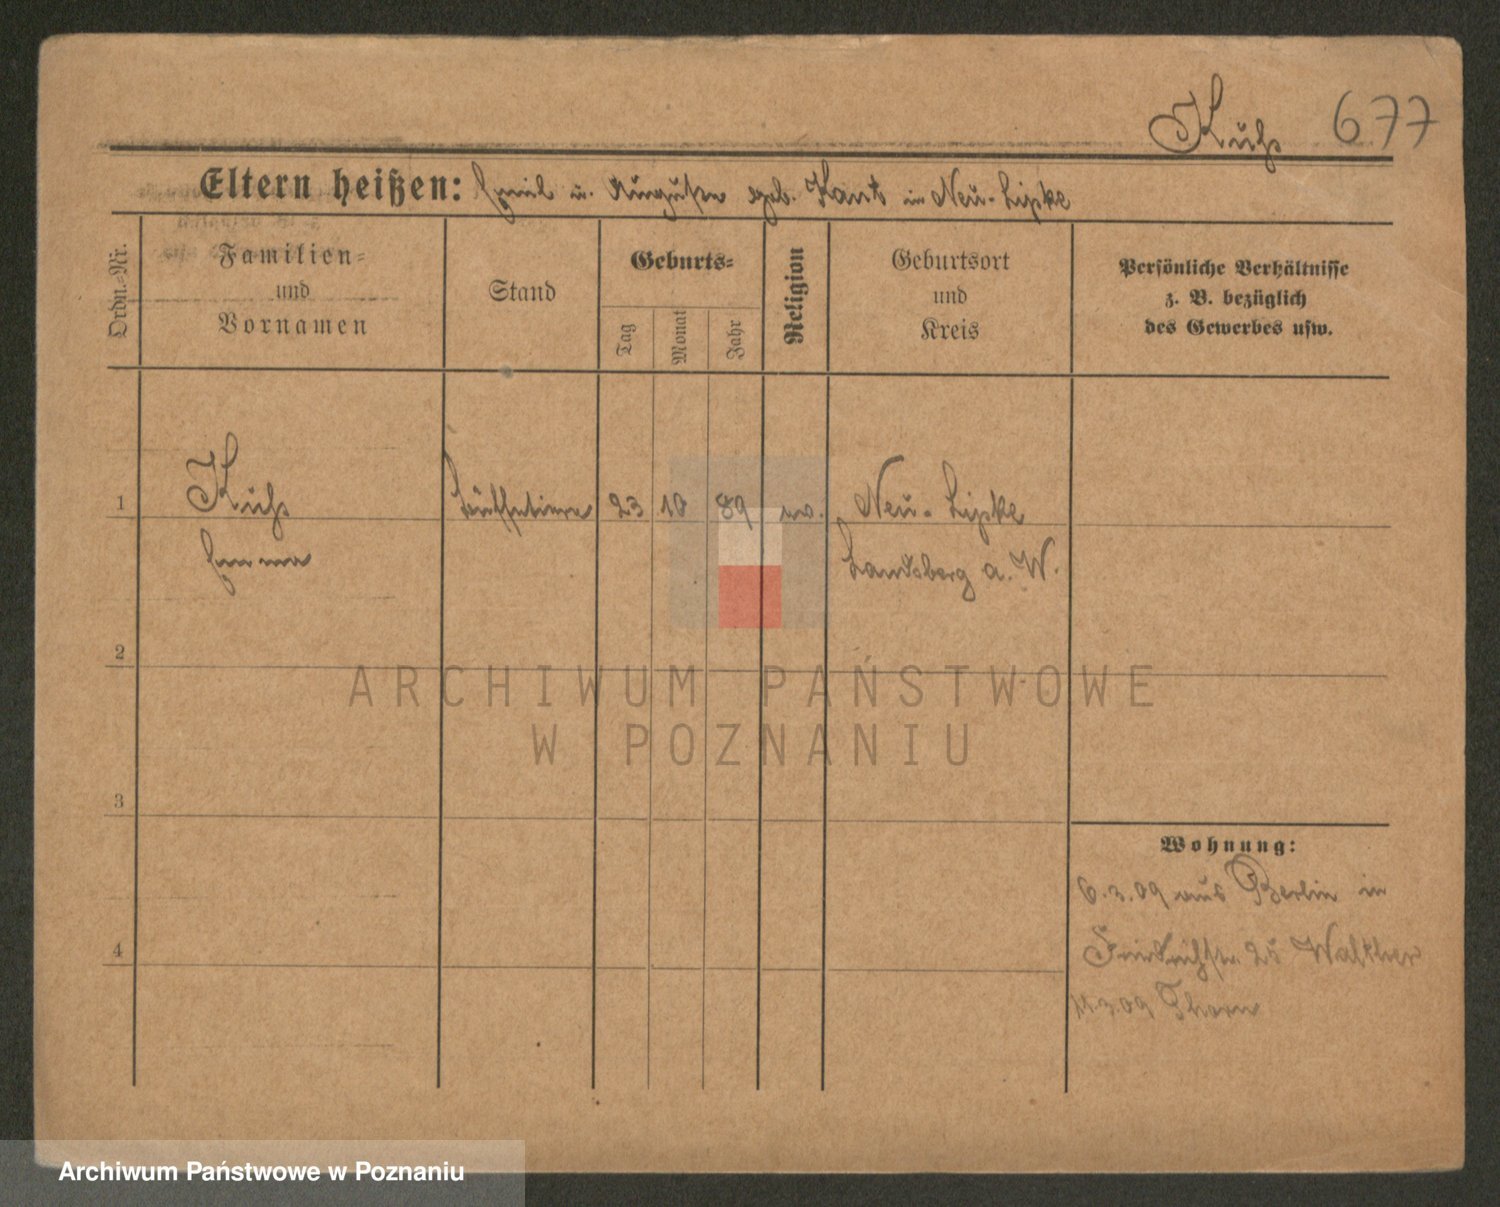 Kuhs 677
Eltern heißen: Emil u. Auguste geb. Kant in Neu-Lipke
Ordn.-Nr.
Familien-
und
Vornamen
Stand
Geburts-
Tag
Monat
Jahr
Religion
Geburtsort
und
Kreis
Persönliche Verhältnisse
z. B. bezüglich
des Gewerbes usw.
1 Kuhs Büffetiere 23 10 89 ev. Neu-Lipke
Emma Landsberg a. W.
2
3
4
Wohnung:
6.3.09 aus Berlin in
Friedrichstr. 25 Walther
11.3.09 Thorn
ARCHIWUM PAŃSTWOWE
W POZNANIU
Archiwum Państwowe w Poznaniu